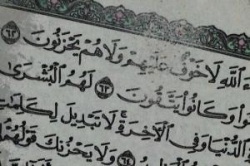 ءَ ٱللَّهِ لَا خَوْفٌ عَلَيْهِمْ وَلَا هُمْ يَحْزَنُونَ ٦٢
نُوا۟ وَكَانُوا۟ يَتَّقُونَ ٦٣ لَهُمُ ٱلْبُشْرَىٰ
ٱلدُّنْيَا وَفِى ٱلْأَخِرَةِ لَا تَبْدِيلَ لِكَلِمَٰتِ
٦٤ وَلَا يَحْزُنكَ قَوْلُهُمْ